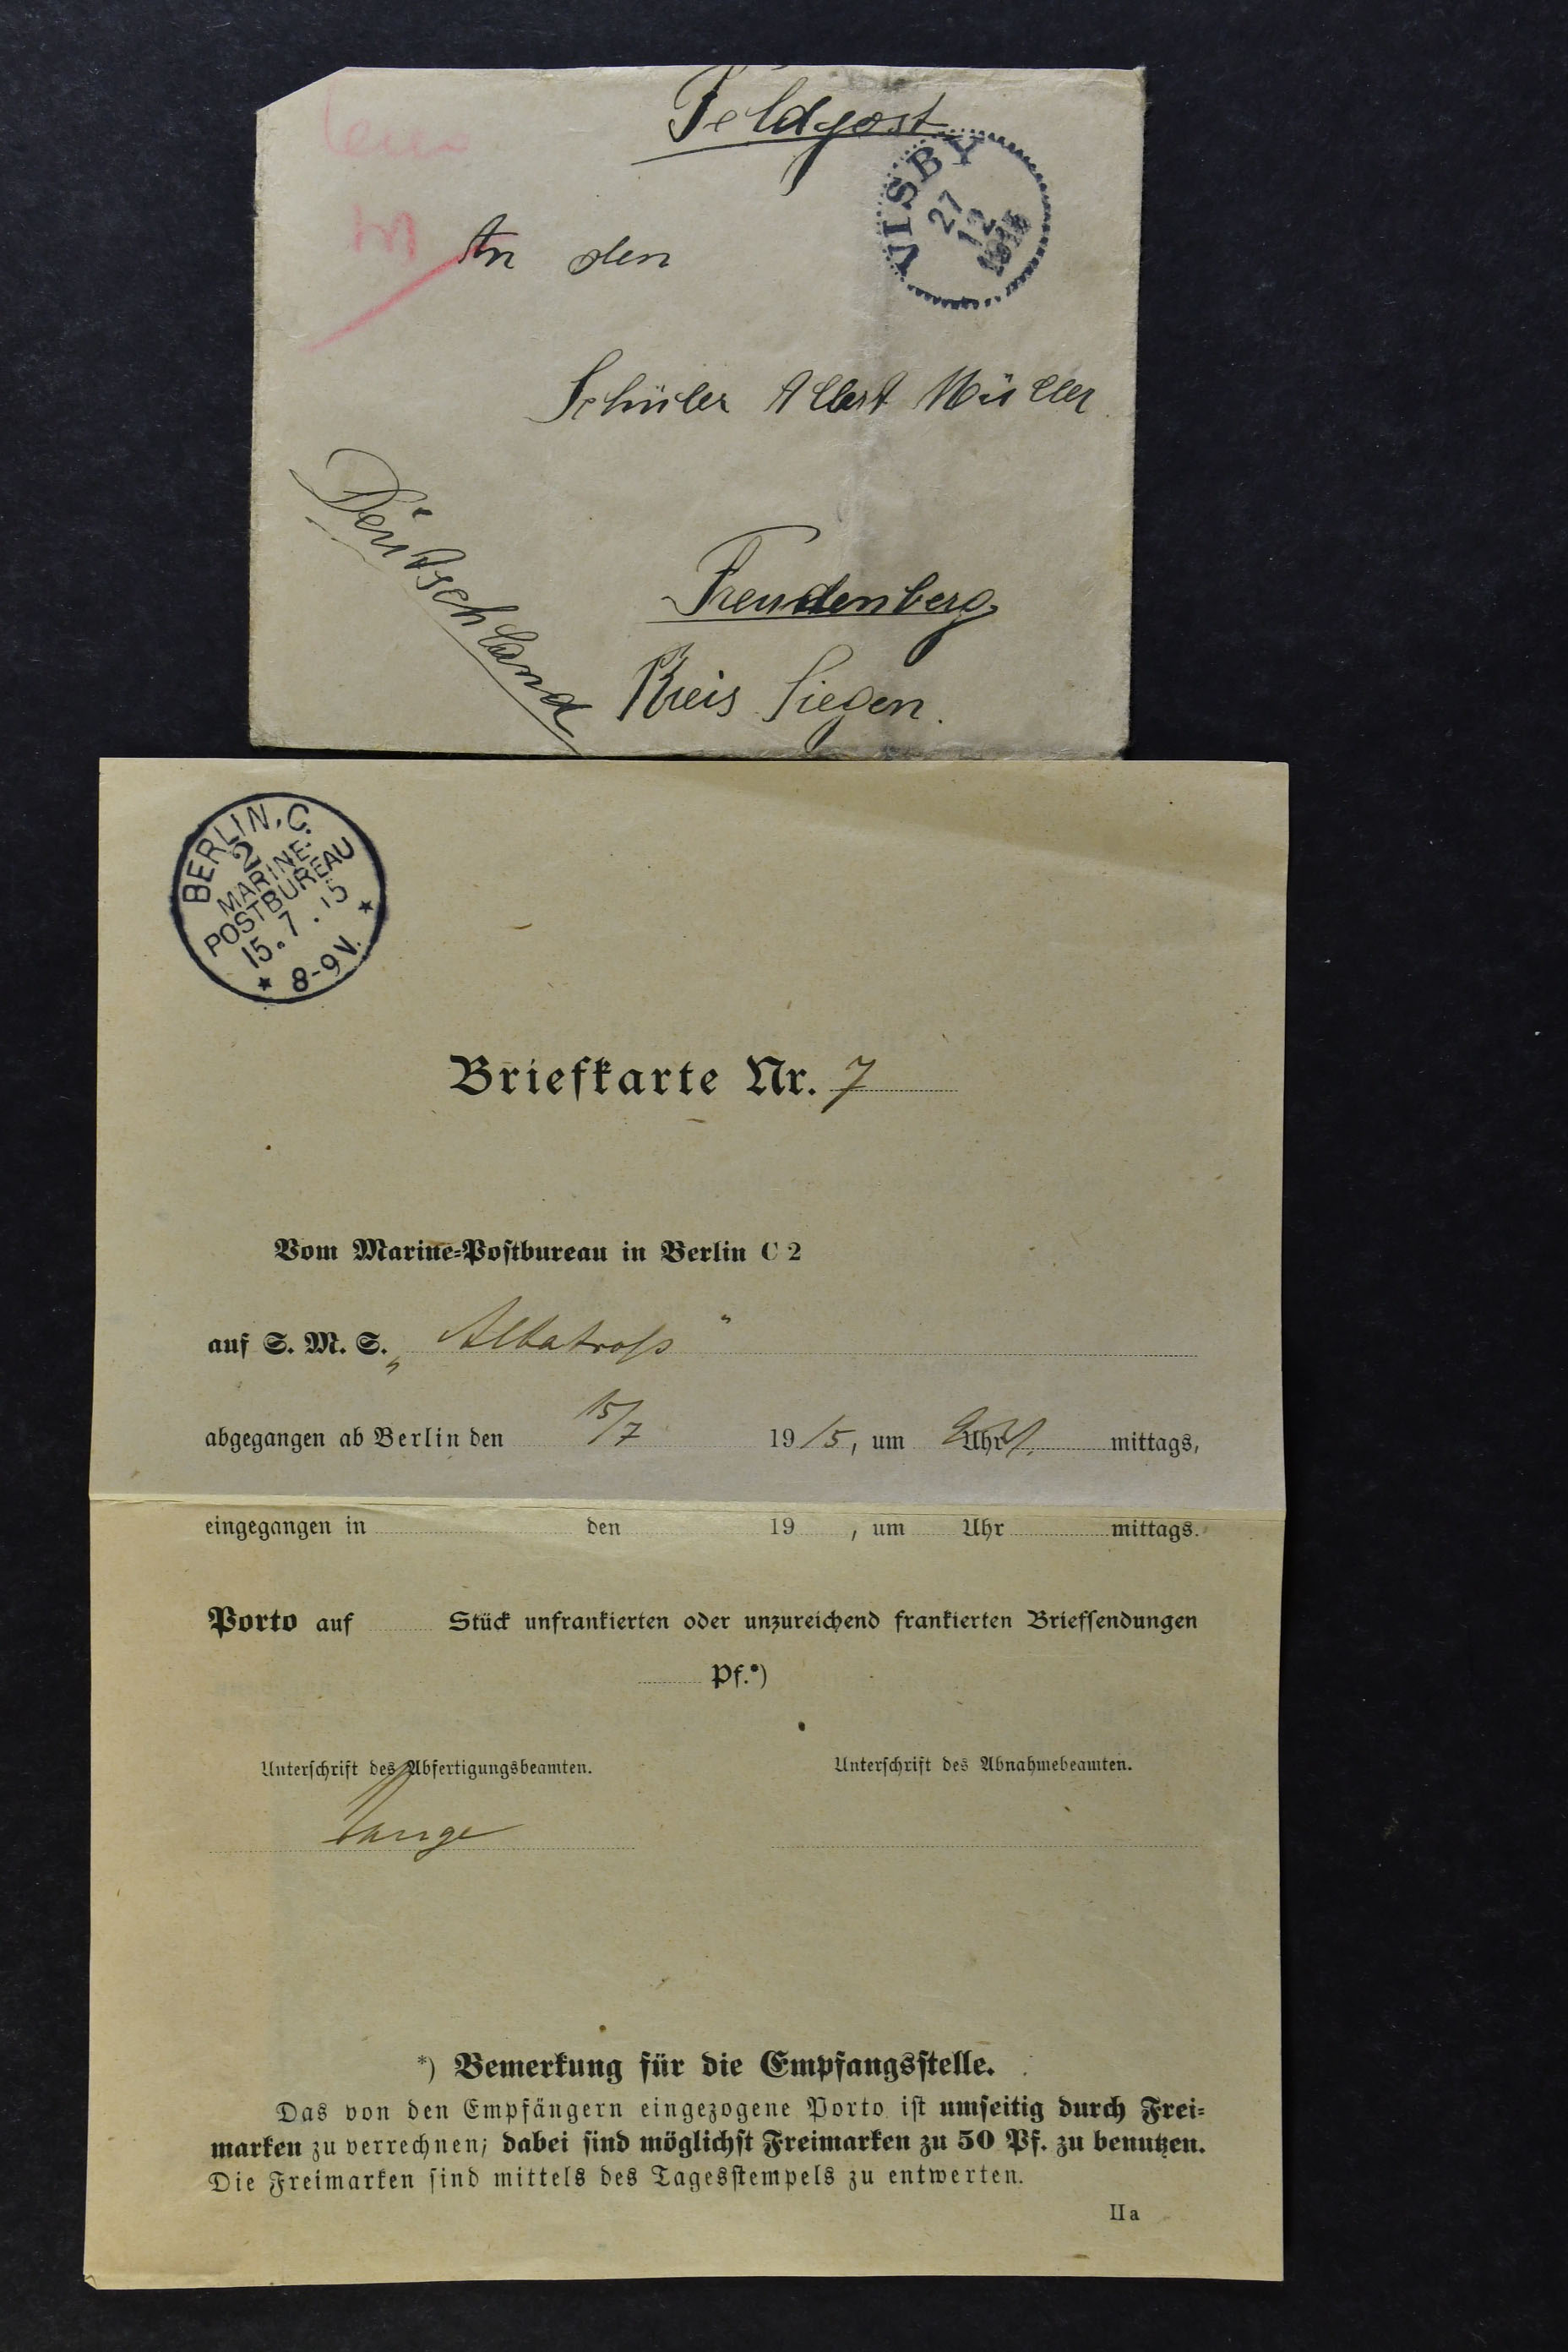 Feldpost
VISBY
27
12
1915
An den
Schüler Albert Müller
Deutschland
Freudenberg
Kreis Siegen.
BERLIN. C.
2
MARINE-
POSTBUREAU
15. 7. 15
* 8-9 V. *
Briefkarte Nr. 7
Vom Marine-Postbureau in Berlin C 2
auf S. M. S. „Albatross"
abgegangen ab Berlin den 15/7 1915, um Uhr mittags,
eingegangen in den 19 , um Uhr mittags.
Porto auf Stück unfrankierten oder unzureichend frankierten Briefsendungen
Pf.*)
Unterschrift des Abfertigungsbeamten. Unterschrift des Abnahmebeamten.
Lange
*) Bemerkung für die Empfangsstelle.
Das von den Empfängern eingezogene Porto ist umseitig durch Frei-
marken zu verrechnen; dabei sind möglichst Freimarken zu 50 Pf. zu benutzen.
Die Freimarken sind mittels des Tagesstempels zu entwerten.
IIa